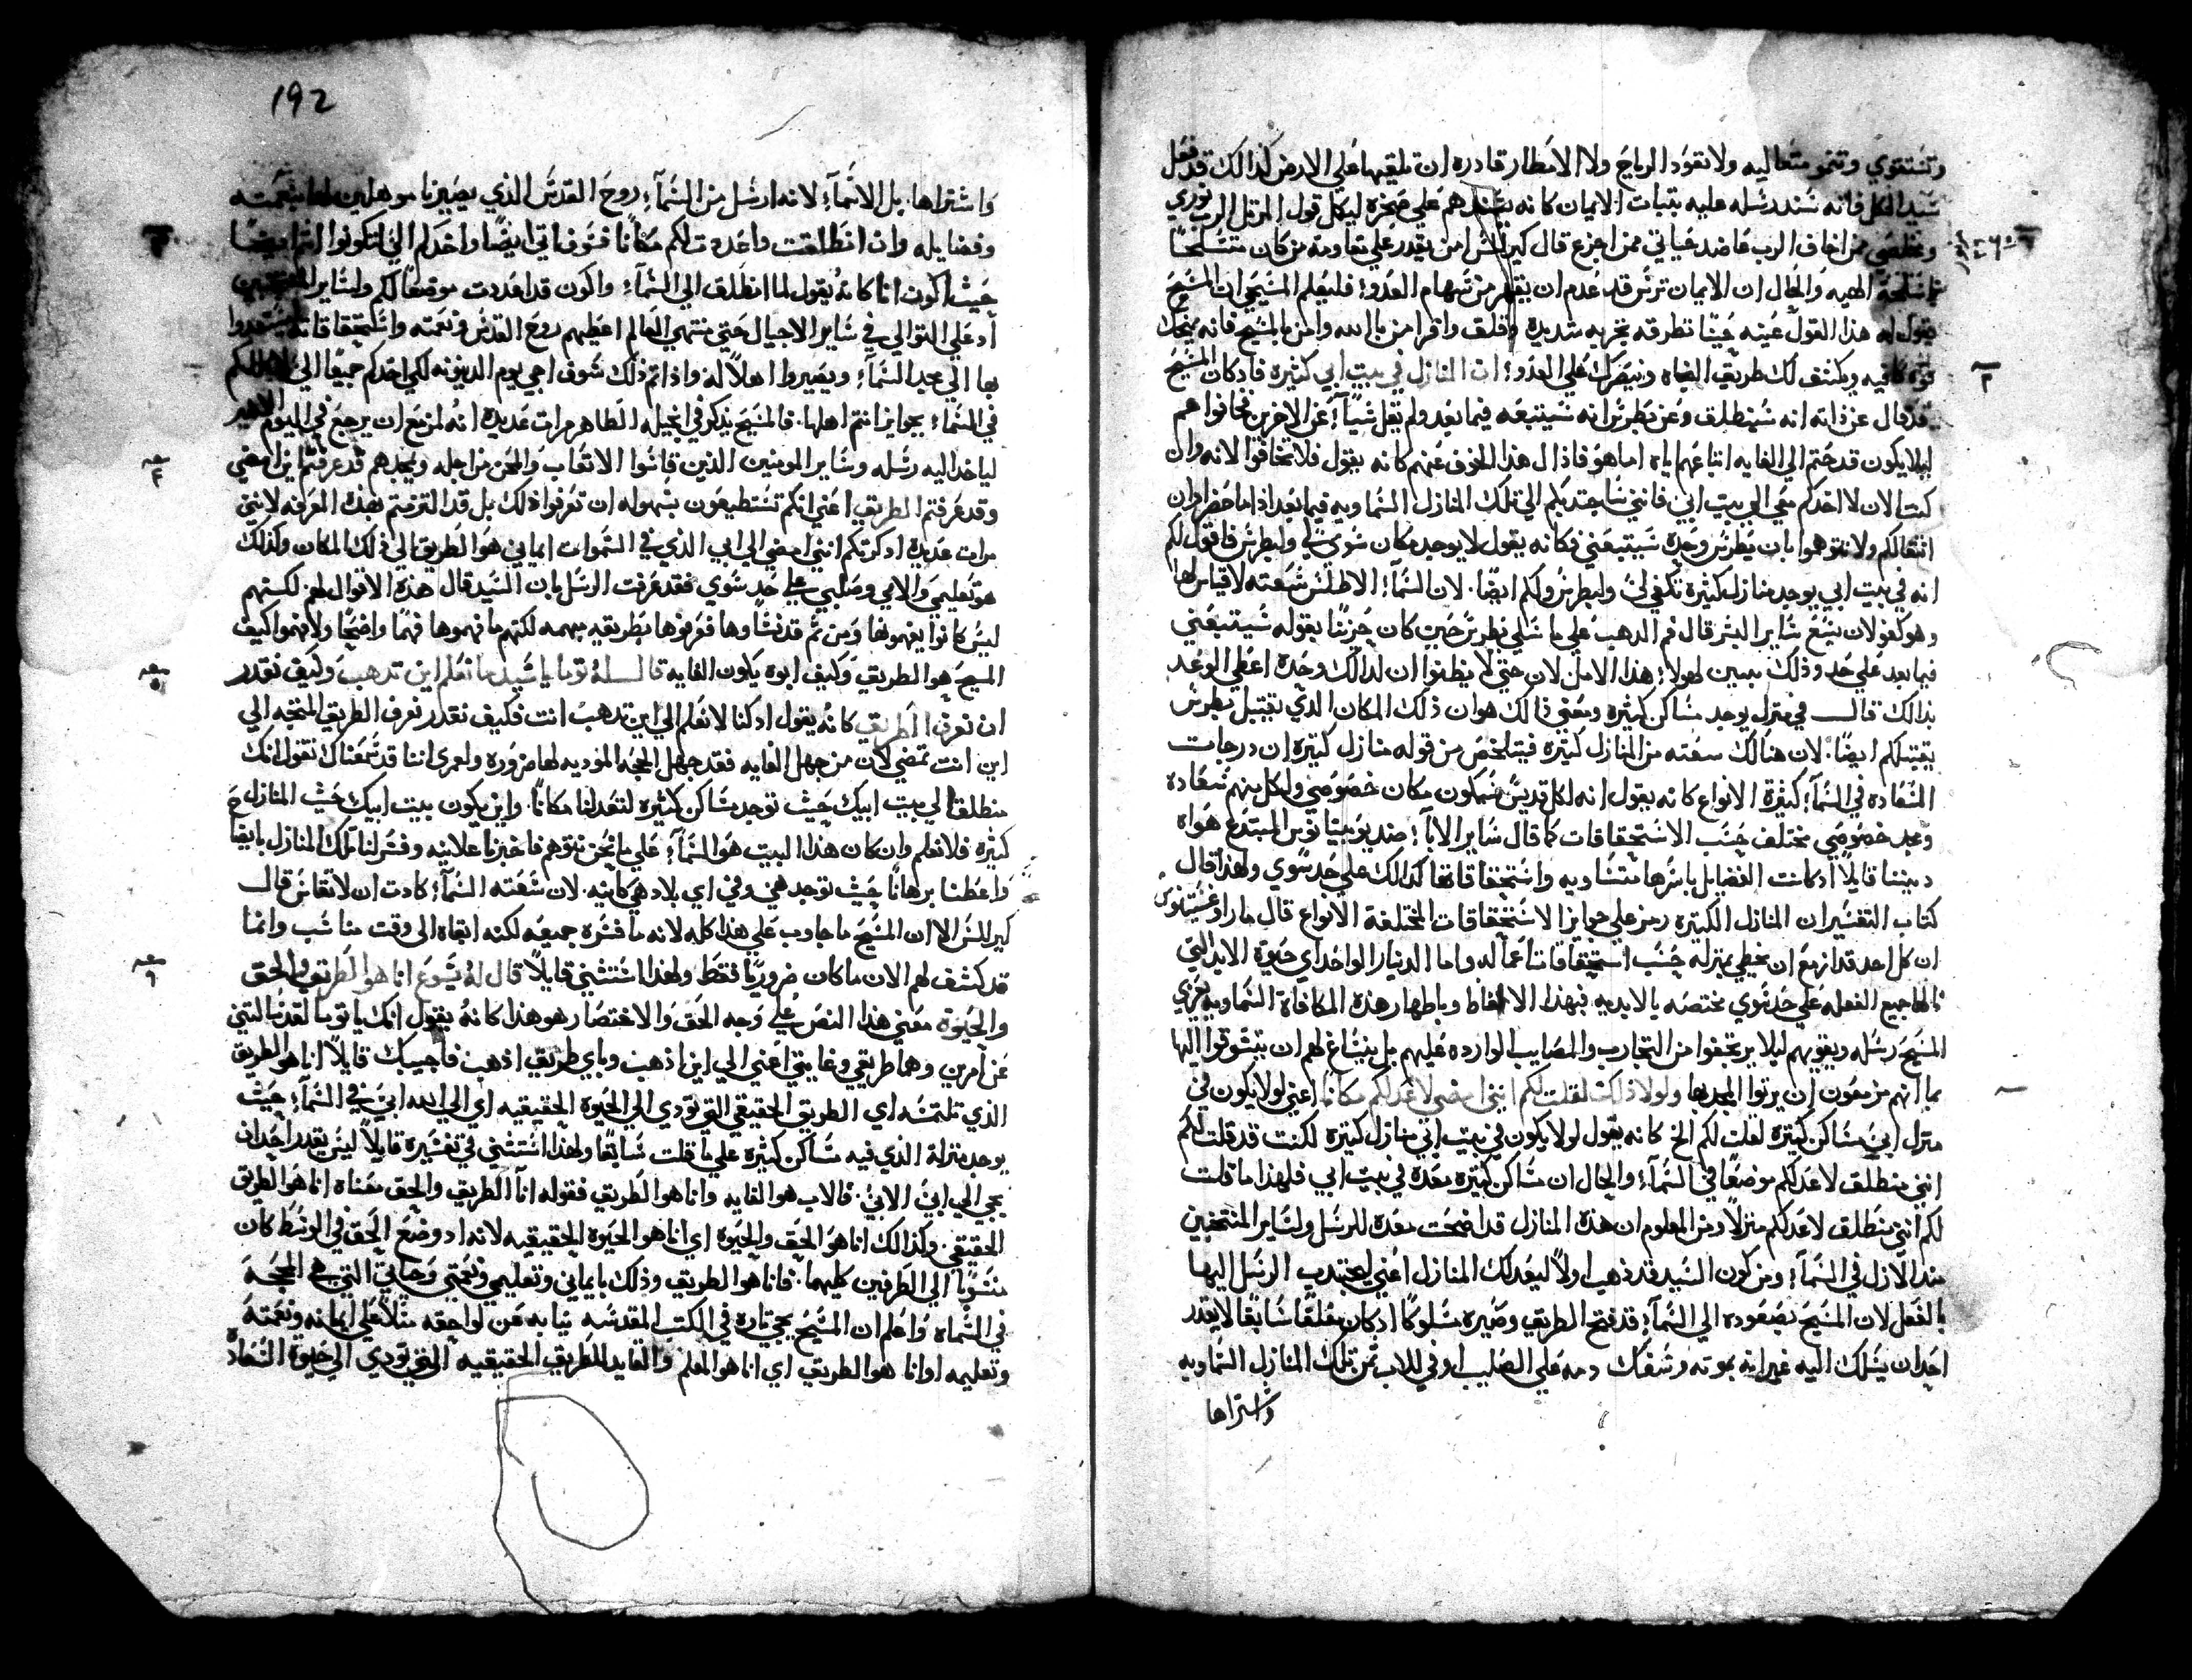 وتستقوي وتنمو متعاليه ولا تقود الرياح ولا الامطار قادره ان تلقيها علي الارض كذالك قد فعل
سيد الكل فانه شدد رسله عليه بتبات الايمان كانه يشيدهم علي صخره ليكل قول المرتل الرب نوري
ومخلصي ممن اخاف الرب عاضد حياتي ممن اجزع قال كيرلس امن يقدر علي مقاومة من كان متسلحًا
باسلحة الهيه والحال ان الايمان ترس قد عدم ان يقهر من سهام العدو؛ فليعلم المسيحي ان المسيح
يقول له هذا القول عينه حينا تطرقه تجربه شديده وقلق واقرا من بالله وامن بالمسيح فانه يمنحك
قوه كافيه ويكشف لك طريق الحياه وينصرك علي العدو؛ ان المنازل في بيت ابي كثيره فاد كان المسيح
قد قال عن ذاته انه سينطلق وعن بطرس انه سيتبعه فيما بعد ولم يقل شياً؛ عن الاخرين خافوا هم
ليلا يكون قد حتم الي الغايه اتباعهم اياه اما هو فاذال هذا الخوف عنهم كانه يقول فلا تخافوا لانه وان
كنت الان لا اخدكم معي الي بيت ابي فانني ساجتدبكم الي تلك المنازل السماويه فيما بعد اذا ما حضر اوان
انتقالكم ولا تتوهموا بان بطرس وحده سيتبعني فكانه يقول لا يوجد مكان سوي لي ولبطرس فاقول لكم
انه في بيت ابي يوجد منازل كثيرة تكفي لي ولبطرس ولكم ايضًا. لان السمآ؛ الاطلس سعته لا قياس لها
وهو كفو لان يسع ساير البشر قال فم الدهب علي ما سلي بطرس حين كان حزينًا بقوله ستتبعني
فيما بعد علي حد وذلك يبين لهولا؛ هذا الامل لان حتي لا يظنوا ان لدالك وحده اعطي الوعد
بذالك قال في منزل يوجد مساكن كثيره ومعني ذالك هو ان ذلك المكان الذي يقتبل بطرس
يقتبلكم ايضًا. لان هنالك سعته من المنازل كثيره فيتلخص من قوله منازل كثيرة ان درجات
السعاده في السمآ؛ كثيرة الانواع كانه يقول انه لكل قديس سيكون مكان خصوصي ولكل منهم سعاده
ومجد خصوصي مختلف حسب الاستحقاقات كما قال ساير الابآ؛ ضد يوبينيانوس المبتدع هواه
دبيننا قايلاً اد كانت الفضايل باسرها متساويه واستحقاقاتها كدالك علي حد سوي ولهذا قال
كتاب التفسير ان المنازل الكتيره رمز علي جوايز الاستحقاقات المختلفة الانواع قال مار اوغستينوس
ان كل احد قد ازمع ان يحظي بمنزله حسب استحقاقات اعماله واما الدينار الواحد اي حيوة الابد التي
نالها جميع الفعله علي حد سوي مختصه بالابديه فبهذا الالفاظ وباظهار هذه المكافاة السماويه يعزي
المسيح رسله ويقويهم ليلا يرتجفوا من التجارب والمصايب الوارده عليهم بل ينساغ لهم ان يتشوقوا اليها
بما انهم مزمعون ان يرتوا المجد بها ولولا ذلك لقلت لكم انني امضي لاعد لكم مكانا اعني لولا يكون في
منزل ابي مساكن كثيره لقلت لكم الخ كانه يقول لولا يكون في بيت ابي منازل كثيره لكنت قد قلت لكم
انني منطلق لاعد لكم موضعًا في السمآ؛ والحال ان مساكن كثيره معده في بيت ابي فلهذا ما قلت
لكم انني منطلق لاعد لكم منزلاً ومن المعلوم ان هذه المنازل قد اضحت معده للرسل ولساير المنتخبين
مند الازل في السمآ؛ ومن كون السيد قد ذهب اولاً ليعد لك المنازل اعني ليجتدب الرسل اليها
بالفعل لان المسيح بصعوده الي السمآ؛ قد فتح الطريق وصيره مسلوكًا اد كان مغلقا سابقًا لا يقدر
احد ان يسلك اليه غير انه بموته وسفك دمه علي الصليب اوفي للاب ثمن تلك المنازل السماويه
واشتراها
192
واشتراها. بل الانمآ؛ لانه ارسل من السمآ؛ روح القدس الذي يصيرنا موهلين لها بنعمته
وفضايله وان انطلقت واعددت لكم مكانًا فسوف اتي ايضًا واخدكم الي لتكونوا انتم ايضًا
حيث اكون انا كانه يقول لما انطلق الي السمآ؛ واكون قد اعددت موضعًا لكم ولساير المنتخبين
اد علي التوالي في ساير الاجيال حتي منتهي العالم اعطيهم روح القدس ونعمته واستحقاقاته ليستعدوا
بها الي مجد السمآ؛ ويصيروا اهلاً له واذا تم ذلك سوف اجي يوم الدينونه لكي اخدكم جميعًا الي لاهلكم
في السمآ؛ بجوايز انتم اهلها. فالمسيح يذكر في انجيله الطاهر مرات عديدة انه لمزمع ان يرجع في اليوم الاخير
لياخد اليه رسله وساير المومنين الذين قاسوا الاتعاب والمحن من اجله ويمجدهم قد عرفتم اين امضي
وقد عرفتم الطريق اعني انكم تستطيعون بسهوله ان تعرفوا ذلك بل قد التزمتم بهذه المعرفه لانني
مرات عديدة ادكرتكم انني امضي الي ابي الذي في السموات ايماني هو الطريق الي ذلك المكان وكذلك
هو تعليمي والامي وصلبي علي حد سوي فقد عرفت الرسل بان السيد قال هذه الاقوال لهم لكنهم
ليس كانوا يفهمونها ومن تم قد نساوها فعرفوها بطريقه مبهمه لكنهم ما فهموها فهمًا واضحًا ولا فهموا كيف
المسيح هو الطريق وكيف ابوه يكون الغايه قال له توما يا سيد ما نعلم اين تدهب وكيف نقدر
ان نعرف الطريق كانه يقول اد كنا لا نعلم الي اين تدهب انت فكيف نقدر نعرف الطريق المتجه الي
اين انت تمضي لان من جهل الغايه فقد جهل الحجه الموديه لها ضروره ولعمري اننا قد سمعناك تقول انك
منطلق الي بيت ابيك حيث توجد مساكن كثيره لتعد لنا مكانًا. واين يكون بيت ابيك حيث المنازل
كثيره فلا نعلم وان كان هذا البيت هو السمآ؛ علي ما نحن نتوهم فاخبرنا علانيه وفسر لنا تلك المنازل بايضاح
واعطنا برهانًا حيث توجد هي وفي اي بلاد هي كاينه. لان سعته السمآ؛ كادت ان لا تقاس قال
كيرلس الا ان المسيح ما جاوب علي هذا كله لانه ما فسره جميعه لكنه ابقاه الي وقت مناسب وانما
قد كشف لهم الان ما كان ضروريًا فقط ولهذا استتني قايلاً قال له يسوع انا هو الطريق والحق
والحيوة معني هذا النص علي وجه الحق والاختصار هو هذا كانه يقول انك يا توما لقد سالتني
عن امرين وهما طريقي وغايتي اعني الي اين اذهب وباي طريق اذهب فاجيبك قايلاً انا هو الطريق
الذي تلتمسه اي الطريق الحقيقي التي تودي الي الحيوة الحقيقيه اي الي الله ابي في السمآ؛ حيث
يوجد منزلة الذي فيه مساكن كثيره علي ما قلت سابقًا ولهذا استتني في تفسيره قايلاً ليس يقدر احد ان
يجي الي ابي الا بي. فالاب هو الغايه وانا هو الطريق فقوله انا الطريق والحق معناه انا هو الطريق
الحقيقي. وكذالك انا هو الحق والحيوة اي انا هو الحيوة الحقيقيه لانه اد وضع الحق في الوسط كان
منسوبًا الي الطرفين كليهما. فانا هو الطريق وذلك بايماني وتعليمي ونعمتي وحياتي التي هي المحجه
في السماء واعلم ان المسيح يجي تاره في الكتب المقدسه نيابه عن لواحقه مثلاً علي ايمانه ونعمته
وتعليمه اوانا هو الطريق اي انا هو المعلم والقايد للطريق الحقيقيه التي تودي الي حيوة السعاده